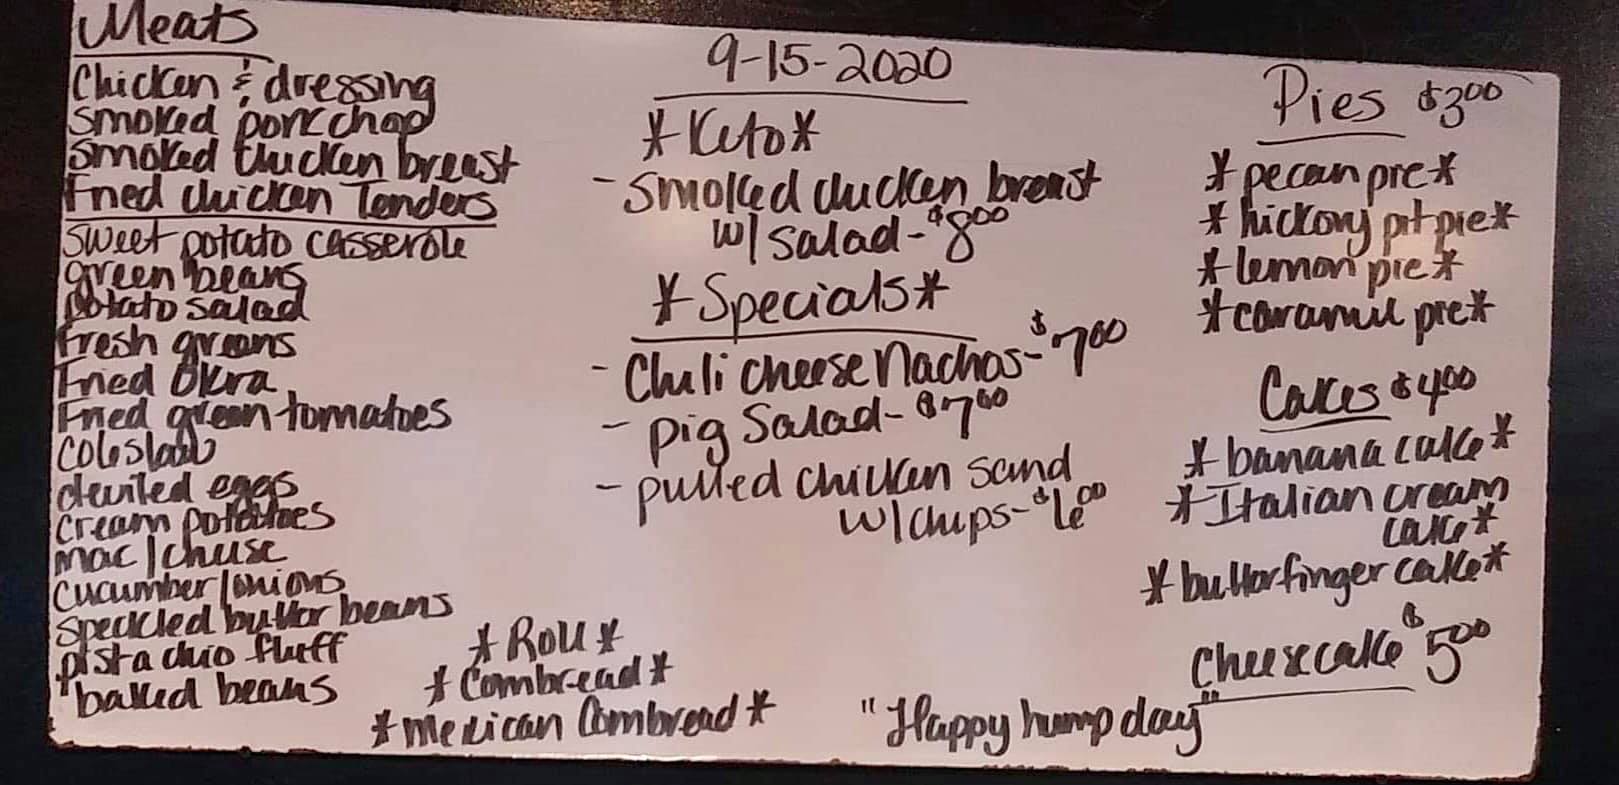 Meats
Chicken & dressing
Smoked porkchop
Smoked chicken breast
Fried chicken Tenders
sweet potato casserole
green beans
potato salad
fresh greens
Fried Okra
Fried green tomatoes
Coleslaw
deviled eggs
cream potatoes
mac/cheese
cucumber/onions
speckled butter beans
pistachio fluff
baked beans
*Roll*
*Cornbread*
*mexican Cornbread*
9-15-2020
*Keto*
- Smoked chicken breast
w/salad-$8.00
*Specials*
- Chili cheese Nachos-$7.00
- pig Salad-$7.00
- pulled chicken sand
w/chips-$6.00
"Happy hump day"
Pies $3.00
*pecan pie*
*hickory pit pie*
*lemon pie*
*caramel pie*
Cakes $4.00
*banana cake*
*Italian cream
cake*
*butterfinger cake*
Cheesecake $5.00